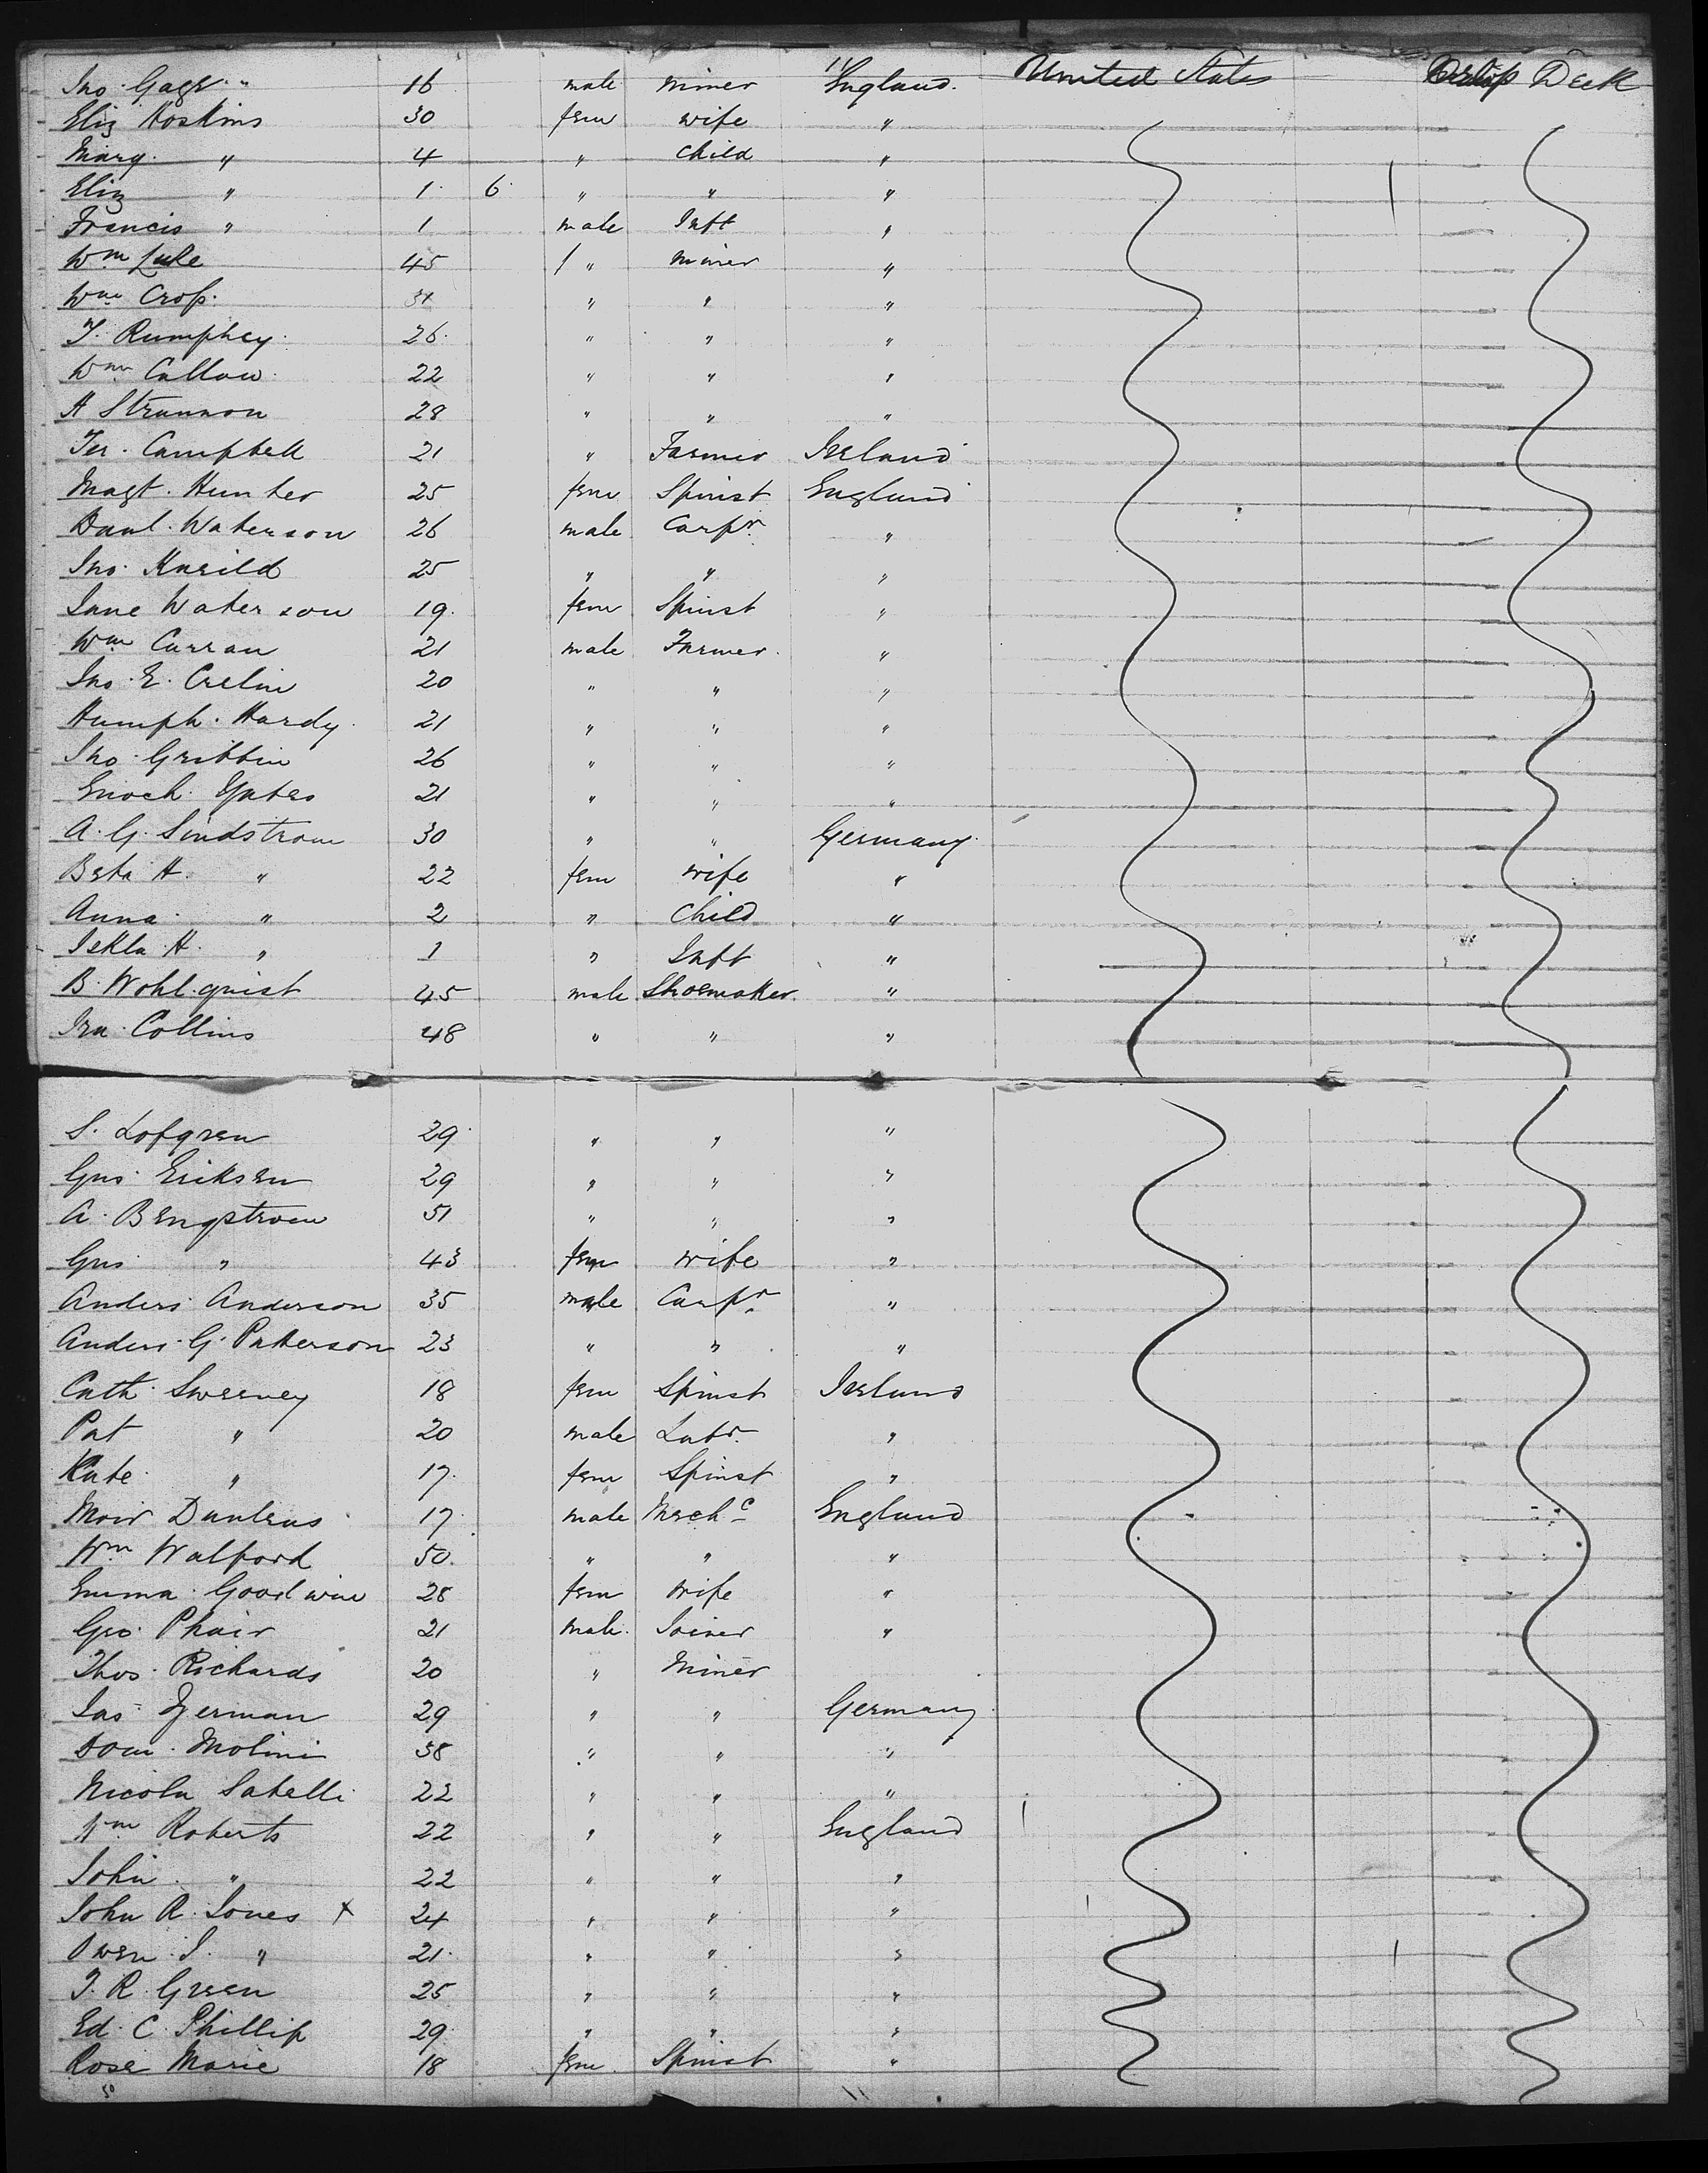 Jno Gage " 16 male miner England. United States Orlop Deck
Eliz Hoskins 30 fem wife "
Marg. " 4 " child "
Eliz " 1 6 " " "
Francis " 1 male Inft "
Wm Luke 45 / " miner "
Wm Crofs. " " "
T. Rumphey 26 " " "
Wm Callow 22 " " "
A Strannon 28 " " "
Jer. Campbell 21 " Farmer Ireland
Magt. Hunter 25 fem Spinst England
Danl. Waterson 26 male Carpr. "
Jno. Kneild 25 " " "
Jane Waterson 19. fem Spinst "
Wm Curran 21 male Farmer. "
Jno. E. Crelin 20 " " "
Humph. Hardy. 21 " " "
Jno Gribbin 26 " " "
Enoch Yates 21 " " "
A. G. Lindstrom 30 " " Germany
Beta H. " 22 fem wife "
Anna " 2 " Child "
Tekla H. " 1 " Inft "
B. Wohlquist 45 male Shoemaker "
Collins 48 " " "
S. Lofgren 29 " " "
Gus Eriksen 29 " " "
A. Bengstrom 51 " " "
Gus " 43 fem wife "
Anders Anderson 35 male Carpr "
Anders G. Patterson 23 " " "
Cath Sweeney 18 fem Spinst Ireland
Pat " 20 male Labr. "
Kate " 17. fem Spinst "
17 male Mechc England
Wm Walford 50. " " "
Emma Goodwin 28 fem wife "
Geo. Phair 21 male. Joiner "
Thos. Richards 20 " Miner
Jas Jerman 29 " " Germany
Dom. Molini 38 " " "
Nicola Satelli 22 " " "
Wm Roberts 22 " " England
John " 22 " " "
John R. Jones x 24 " " "
Owen J. " 21. " " "
T. R. Green 25 " " "
Ed. C. Phillip 29 " " "
Rose Marie 18 fem. Spinst "
50 11